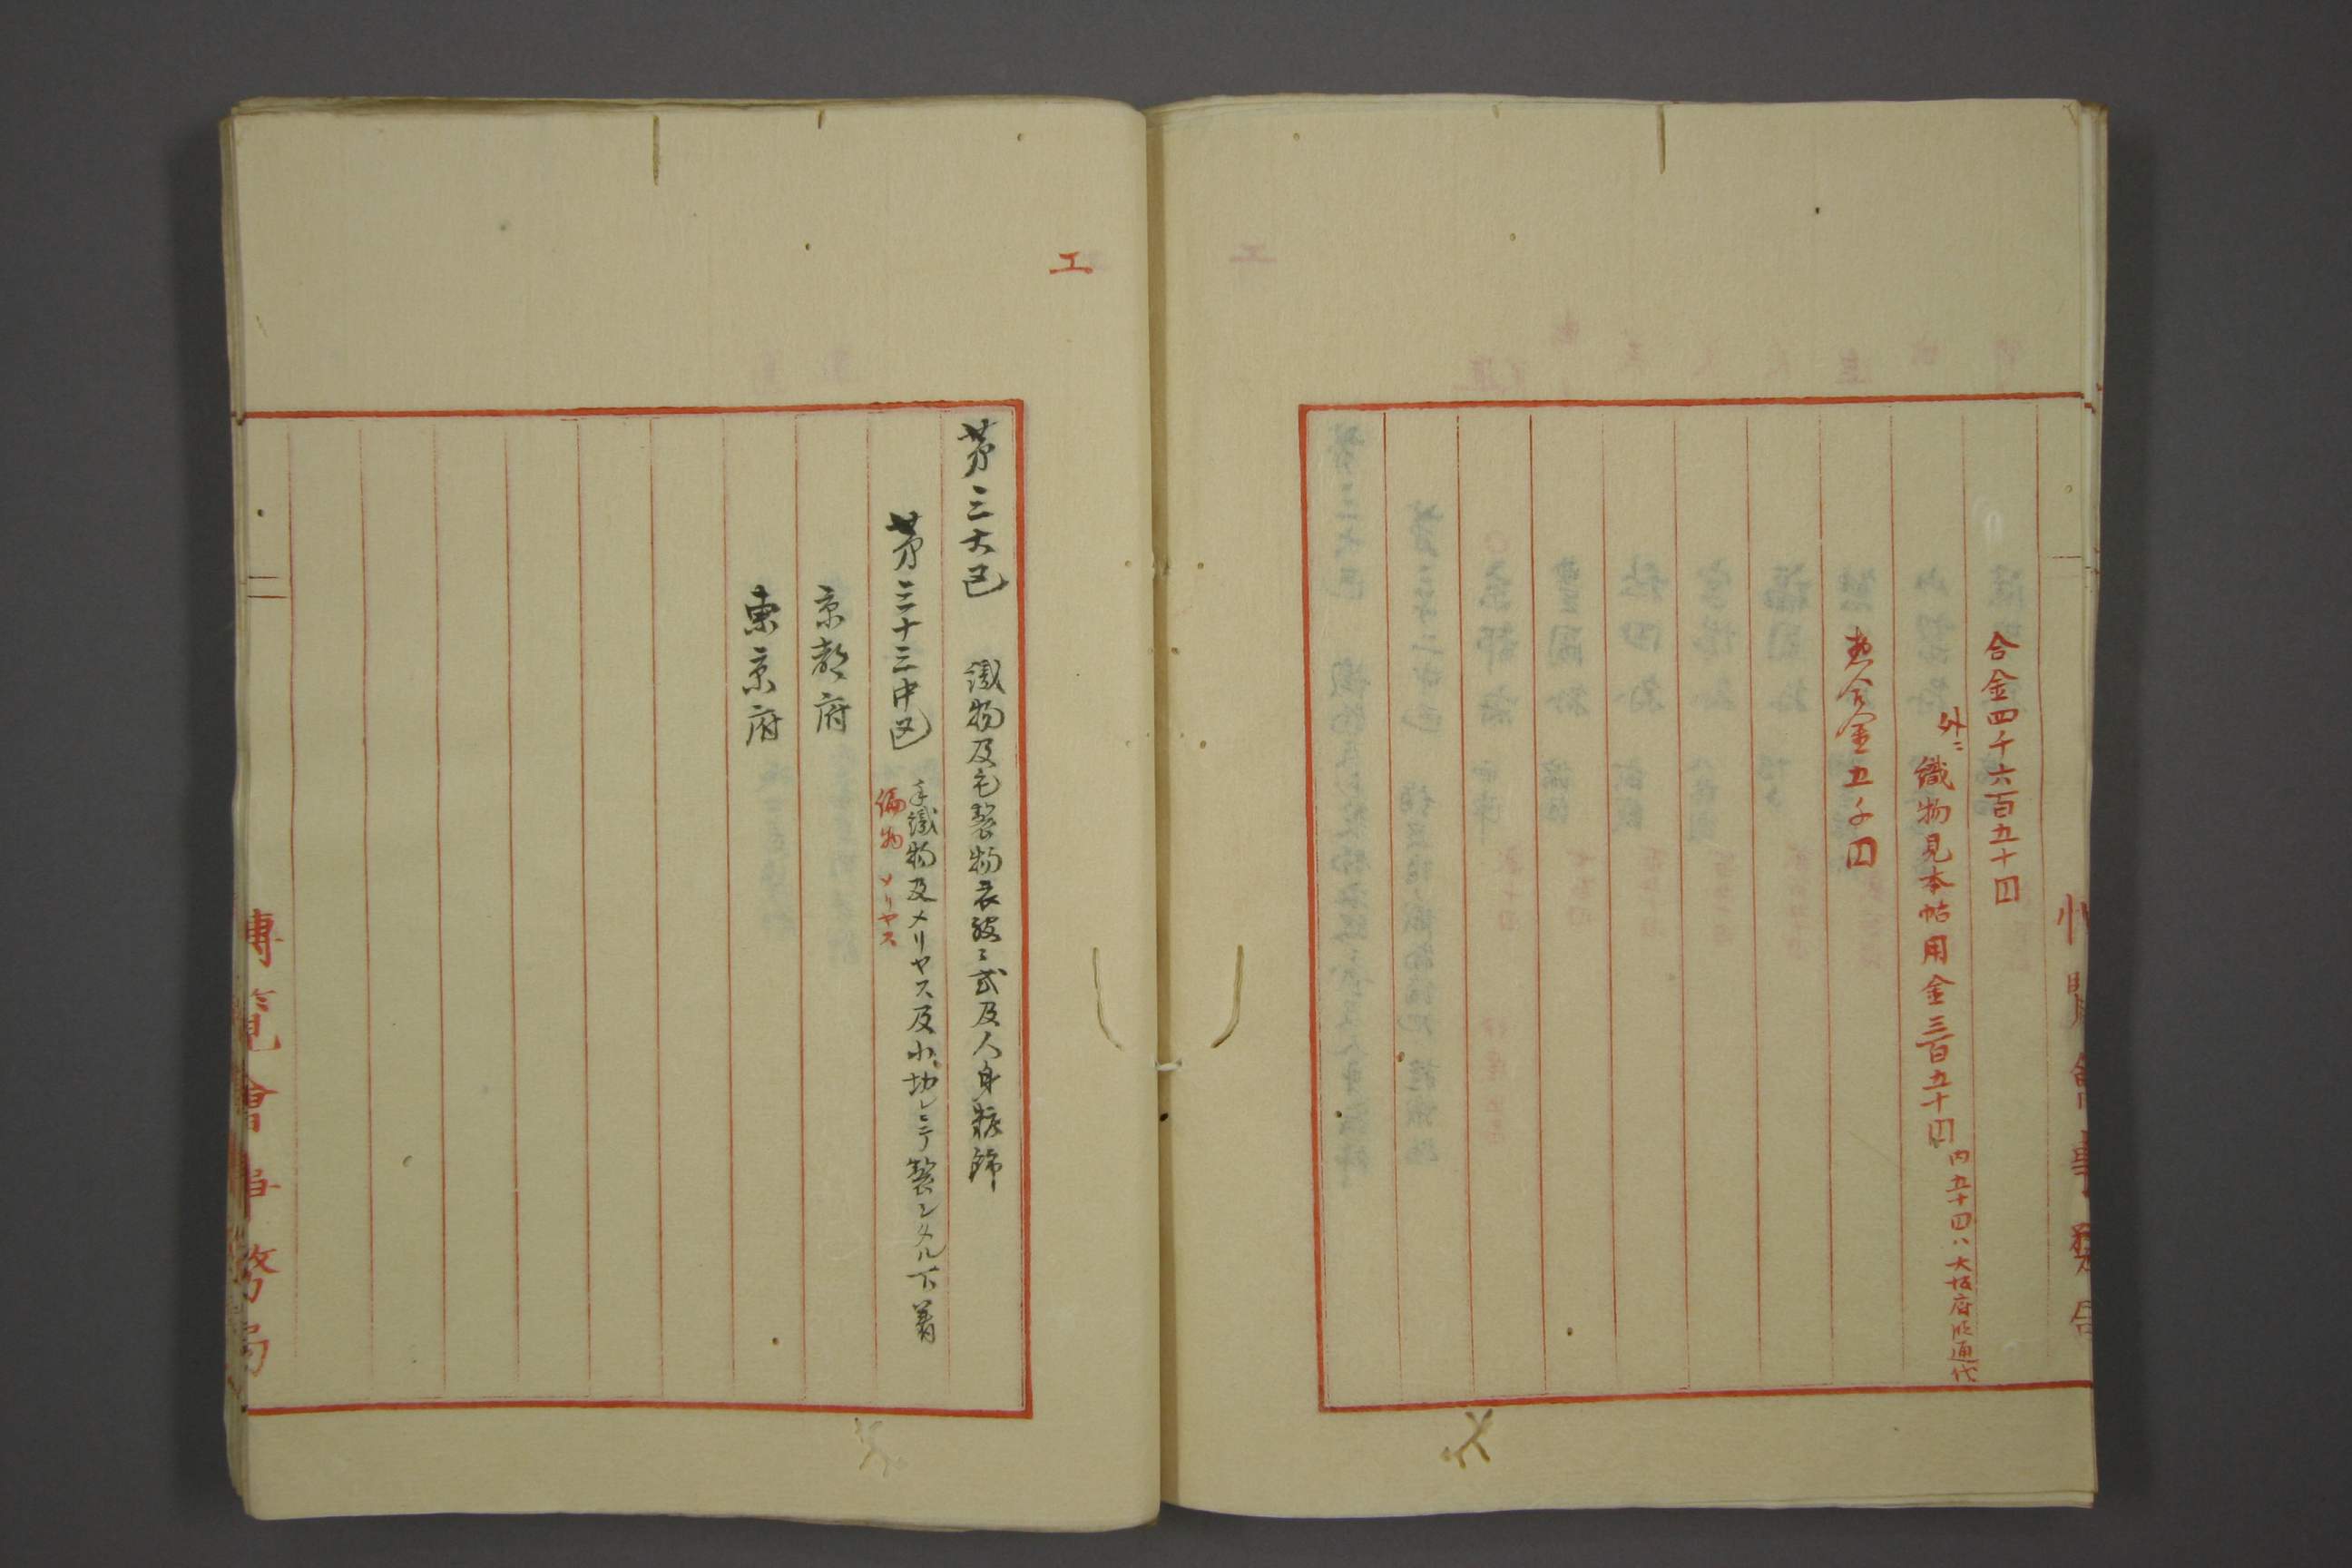 合金四千六百五十円
外ニ織物見本帖用金三百五十円
内五十円ハ大坂府段通代
惣合金五千円
工
第三大区 織物及毛製物衣服ニ式及人身粧飾
第三十三中区 手織物及メリヤス及小切レニテ製シタル下着
編物 メリヤス
京都府
東京府
博覧會事務局